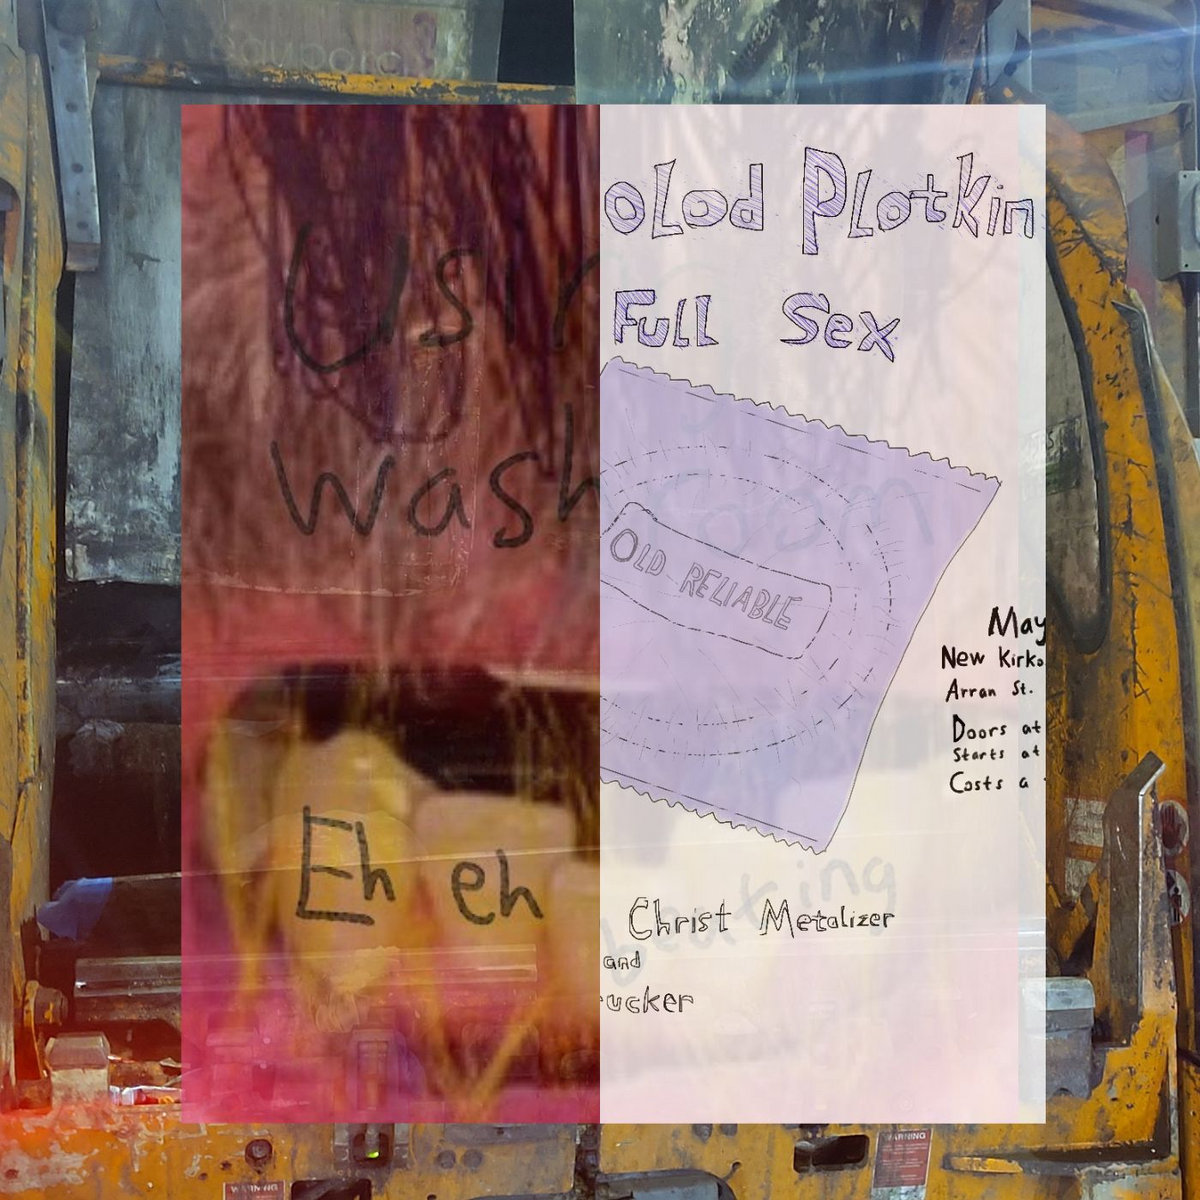 oLod PLotkin
Usin
Full Sex
wash room
OLD RELIABLE
May
New Kirk
Arran St.
Doors at
Starts at
Costs a
Eh eh
Christ Metalizer
and
ucker
WARNING
WARNING